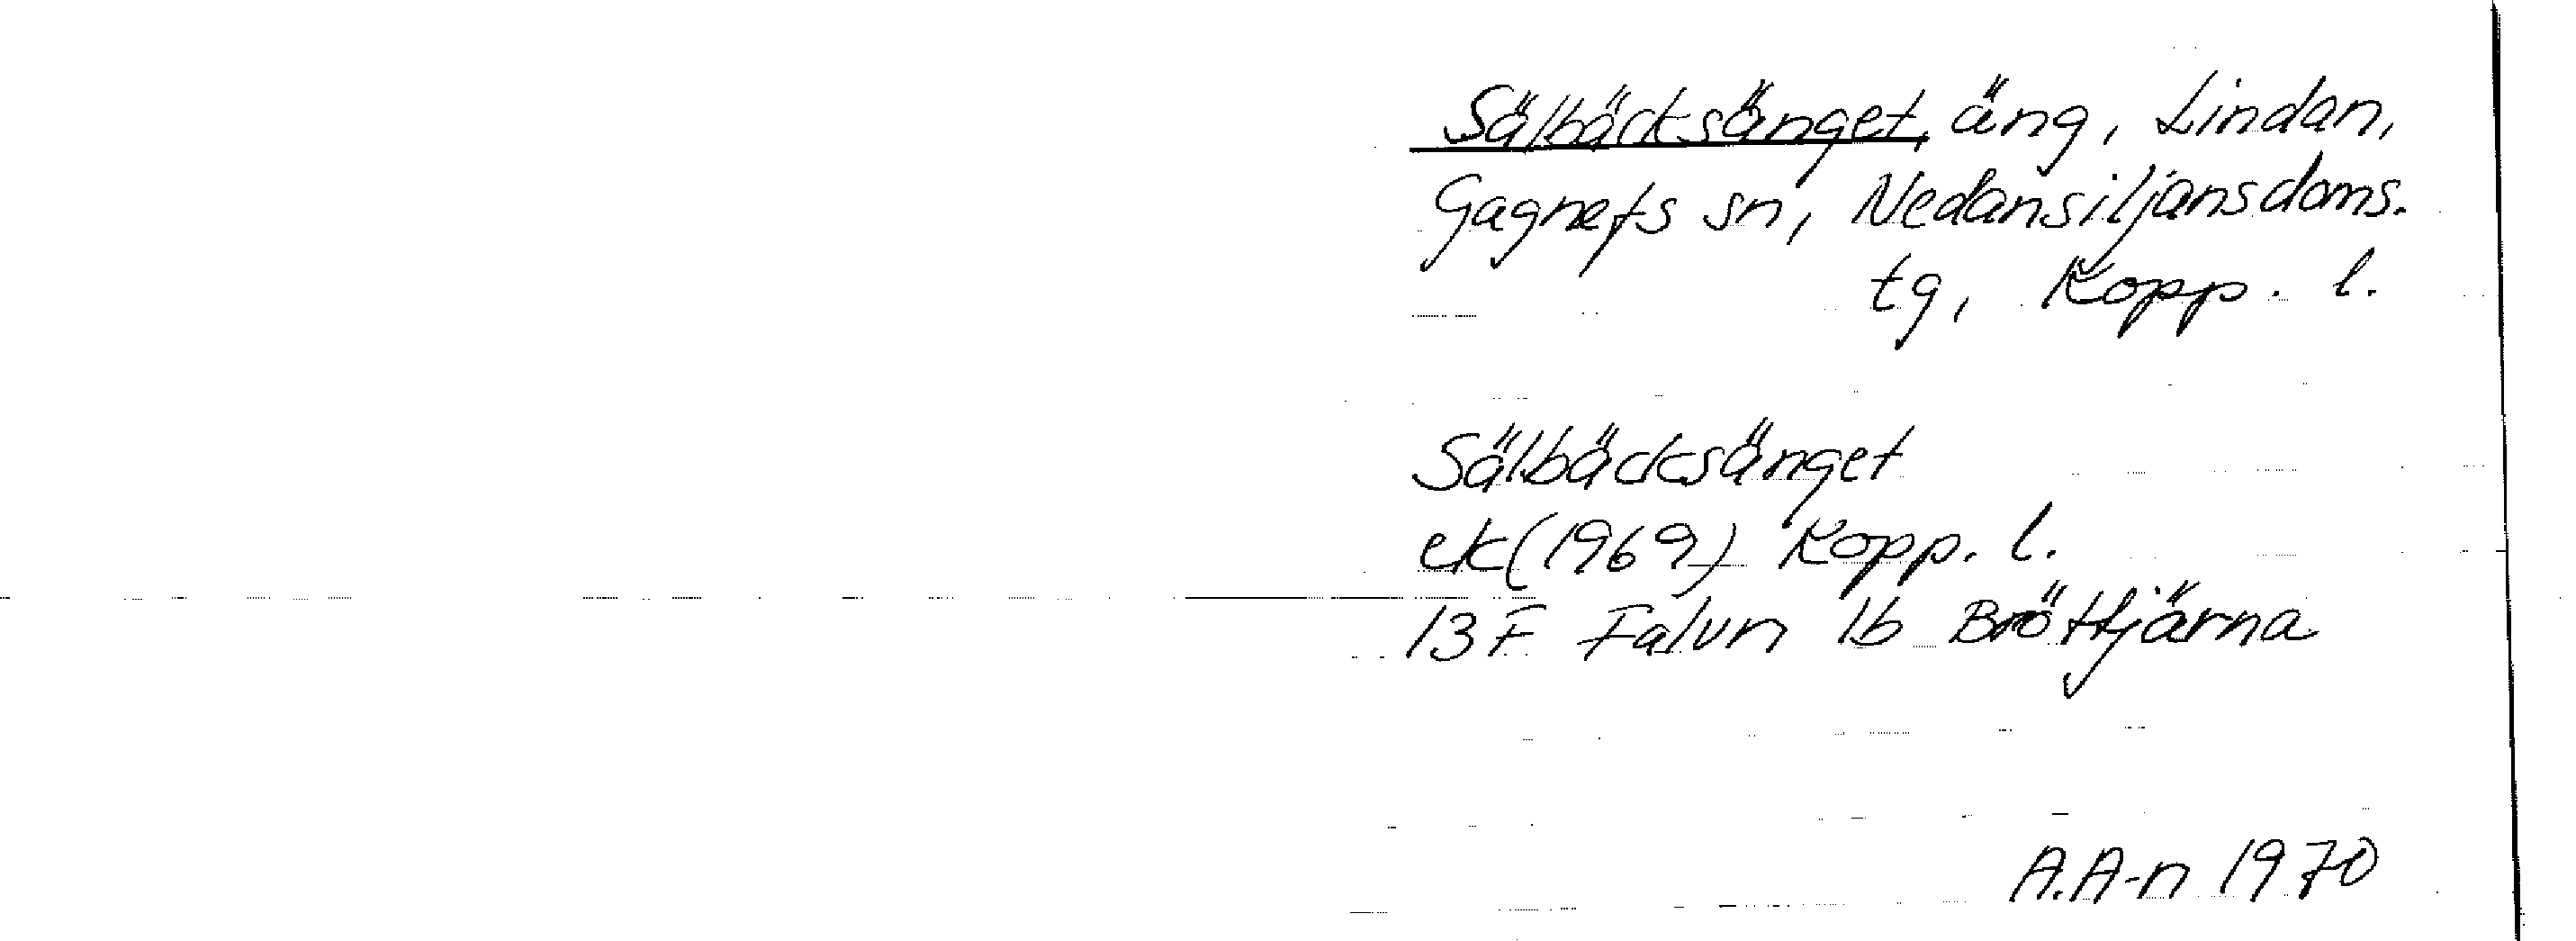 Sälbäcksänget, äng, Lindan,
Gagnefs sn, Nedansiljansdoms.
tg, Kopp. l.
Sälbäcksänget
ek(1969) Kopp. l.
13F Falun 1b Bröttjärna
A.A-n 1970